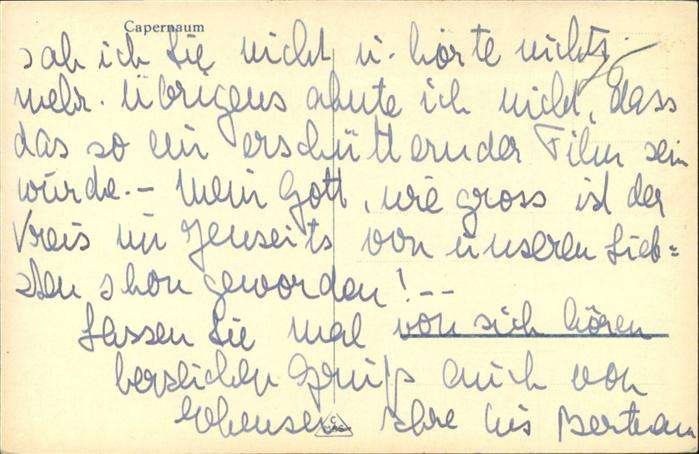 Capernaum
sah ich Sie nicht u. hörte nichts
mehr. Übrigens ahnte ich nicht, dass
das so ein erschütternder Film sein
würde. – Mein Gott, wie gross ist der
Kreis im Jenseits von unseren Lieb=
sten schon geworden! --
Lassen Sie mal von sich hören
herzlichen Gruß auch von
Ihre